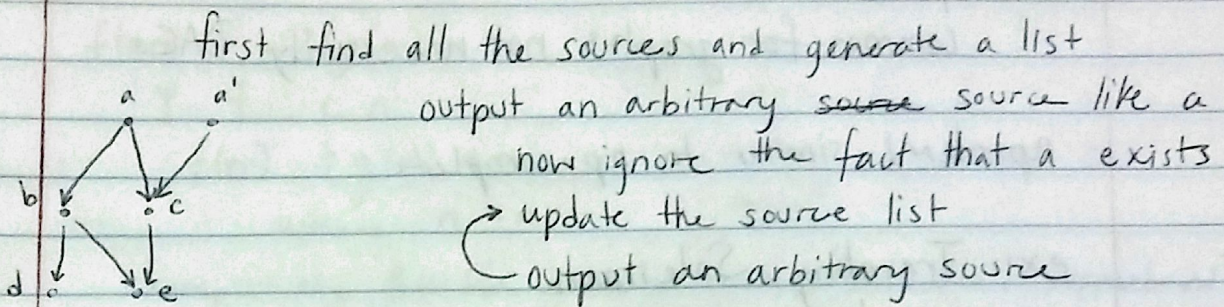 first find all the sources and generate a list
a a'
output an arbitrary source source like a
now ignore the fact that a exists
b c
update the source list
output an arbitrary source
d e